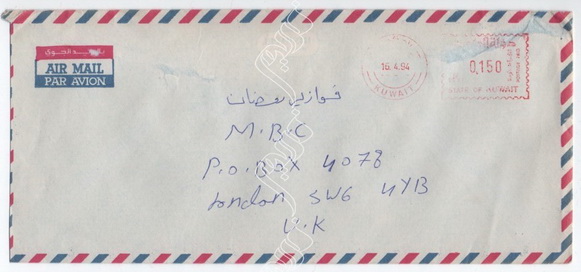 بالبريد الجوي
AIR MAIL
PAR AVION
16.4.94
KUWAIT
0,150
STATE OF KUWAIT
فوازير رمضان
M.B.C
P.O.BOX 4078
London SW6 4YB
U.K